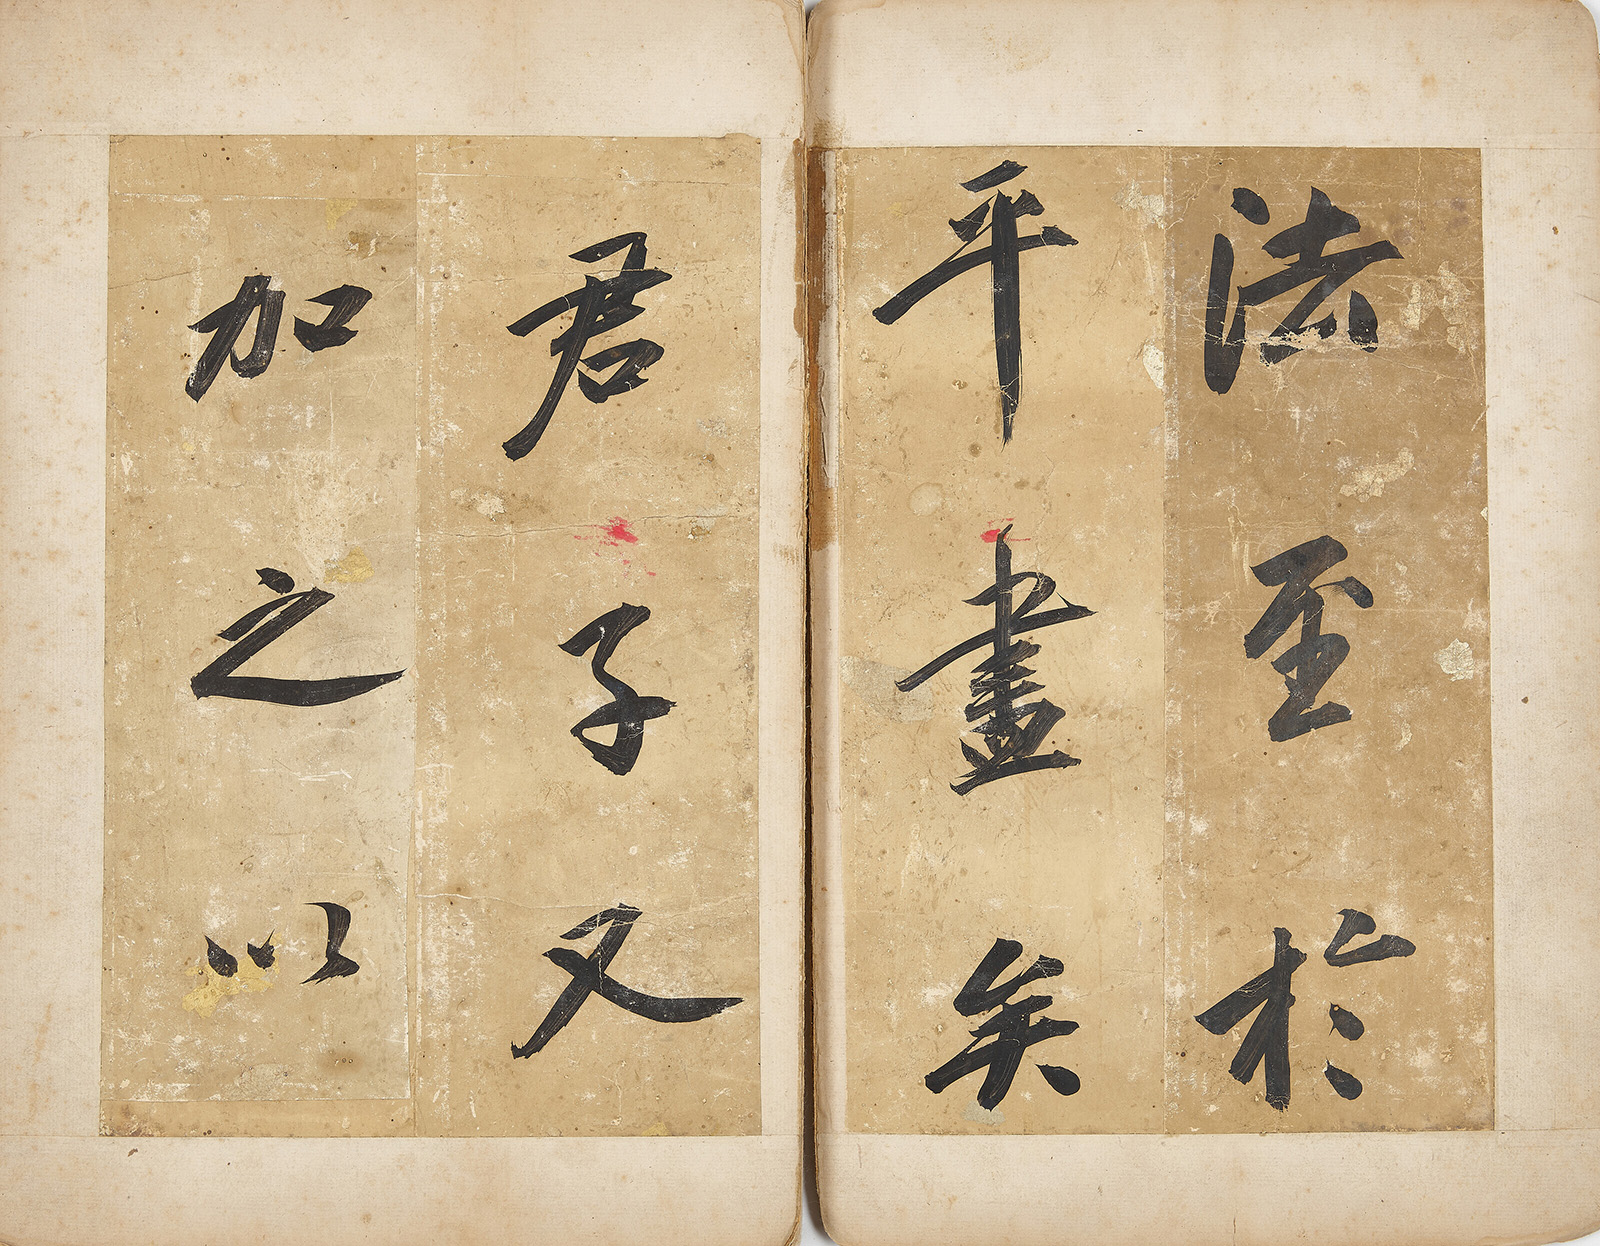 法至於
平盡矣
君子又
加之以